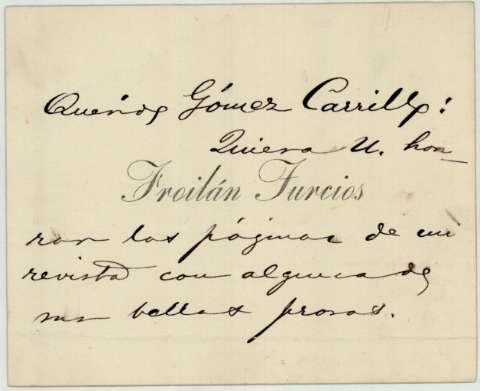 Querido Gómez Carrillo:
Quiera U. hon-
Froilán Turcios
rar las páginas de mi
revista con alguna de
sus bellas prosas.